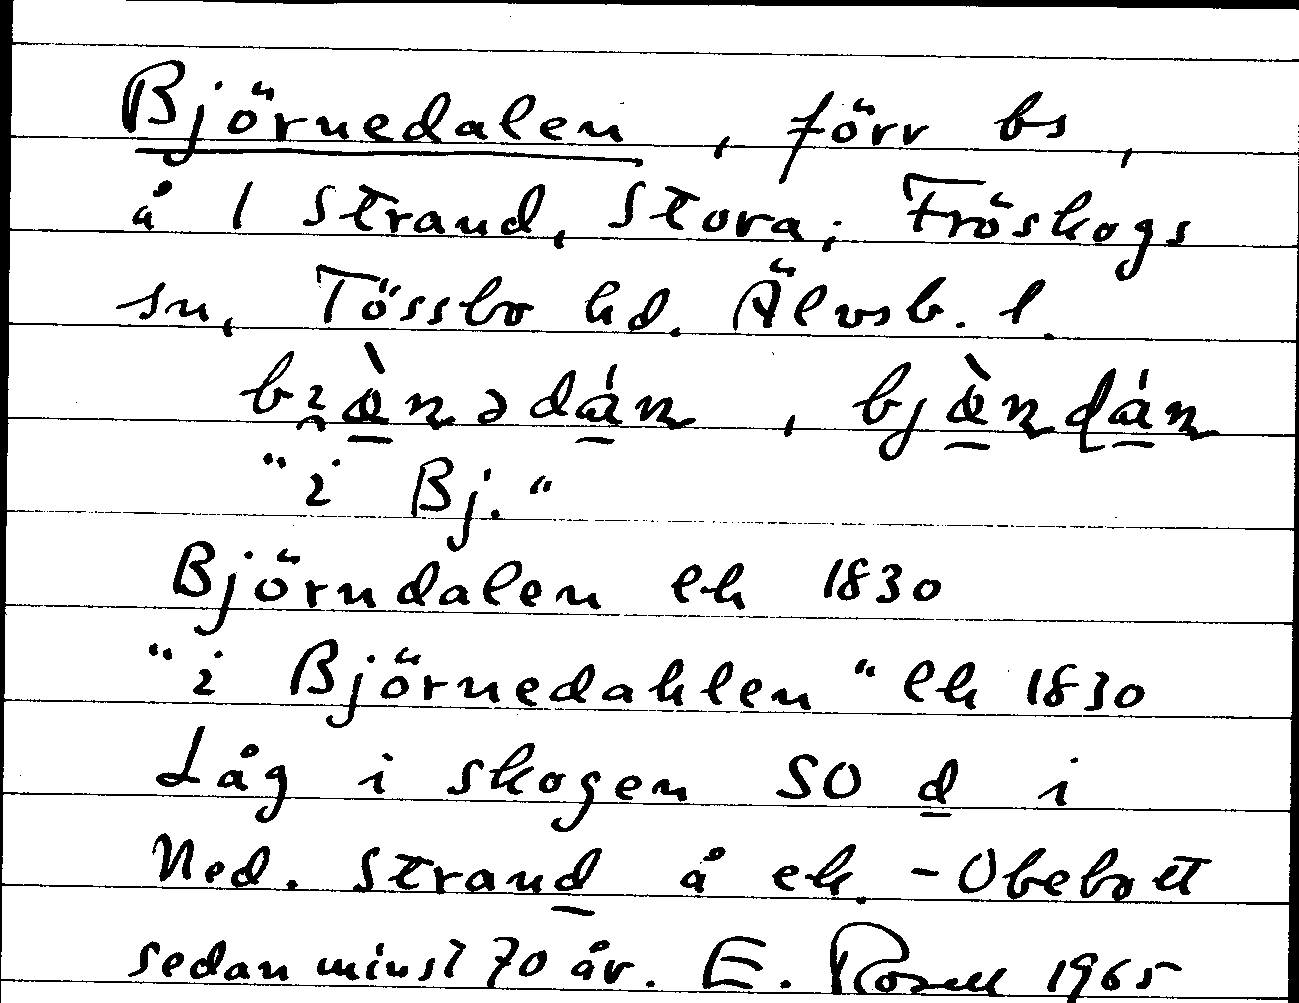 Björnedalen, förr bs,
å 1 Strand, Stora; Fröskogs
sn, Tössbo hd. Älvsb. l.
"i Bj."
Björndalen lh 1830
"i Björnedahlen" lh 1830
Låg i skogen SO d i
Ned. Strand å ek. - Obebott
sedan minst 70 år. E. Rosell 1965